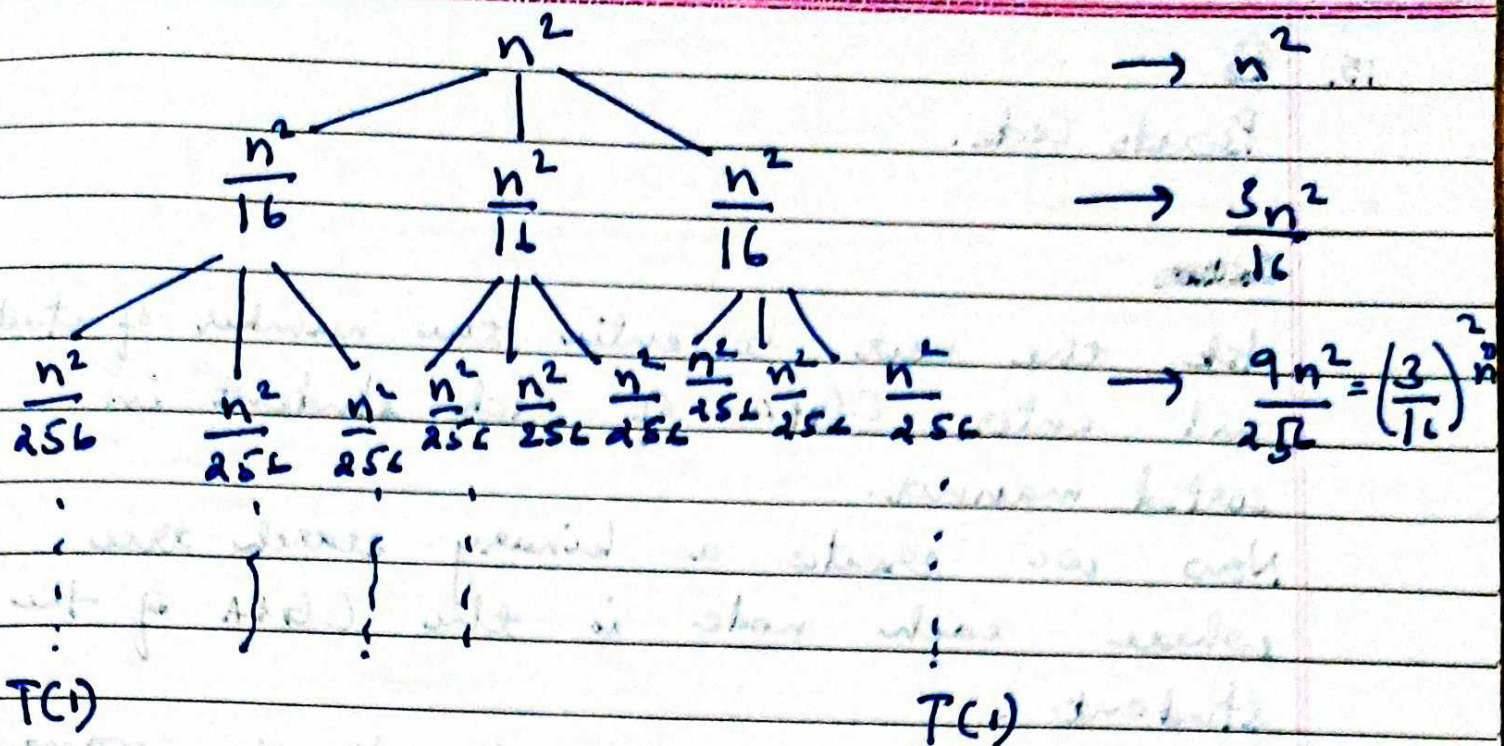 n² → n²
n²/16 n²/16 n²/16 → 3n²/16
n²/256 n²/256 n²/256 n²/256 n²/256 n²/256 n²/256 n²/256 n²/256 → 9n²/256 = (3/16)² n²
T(1) T(1)